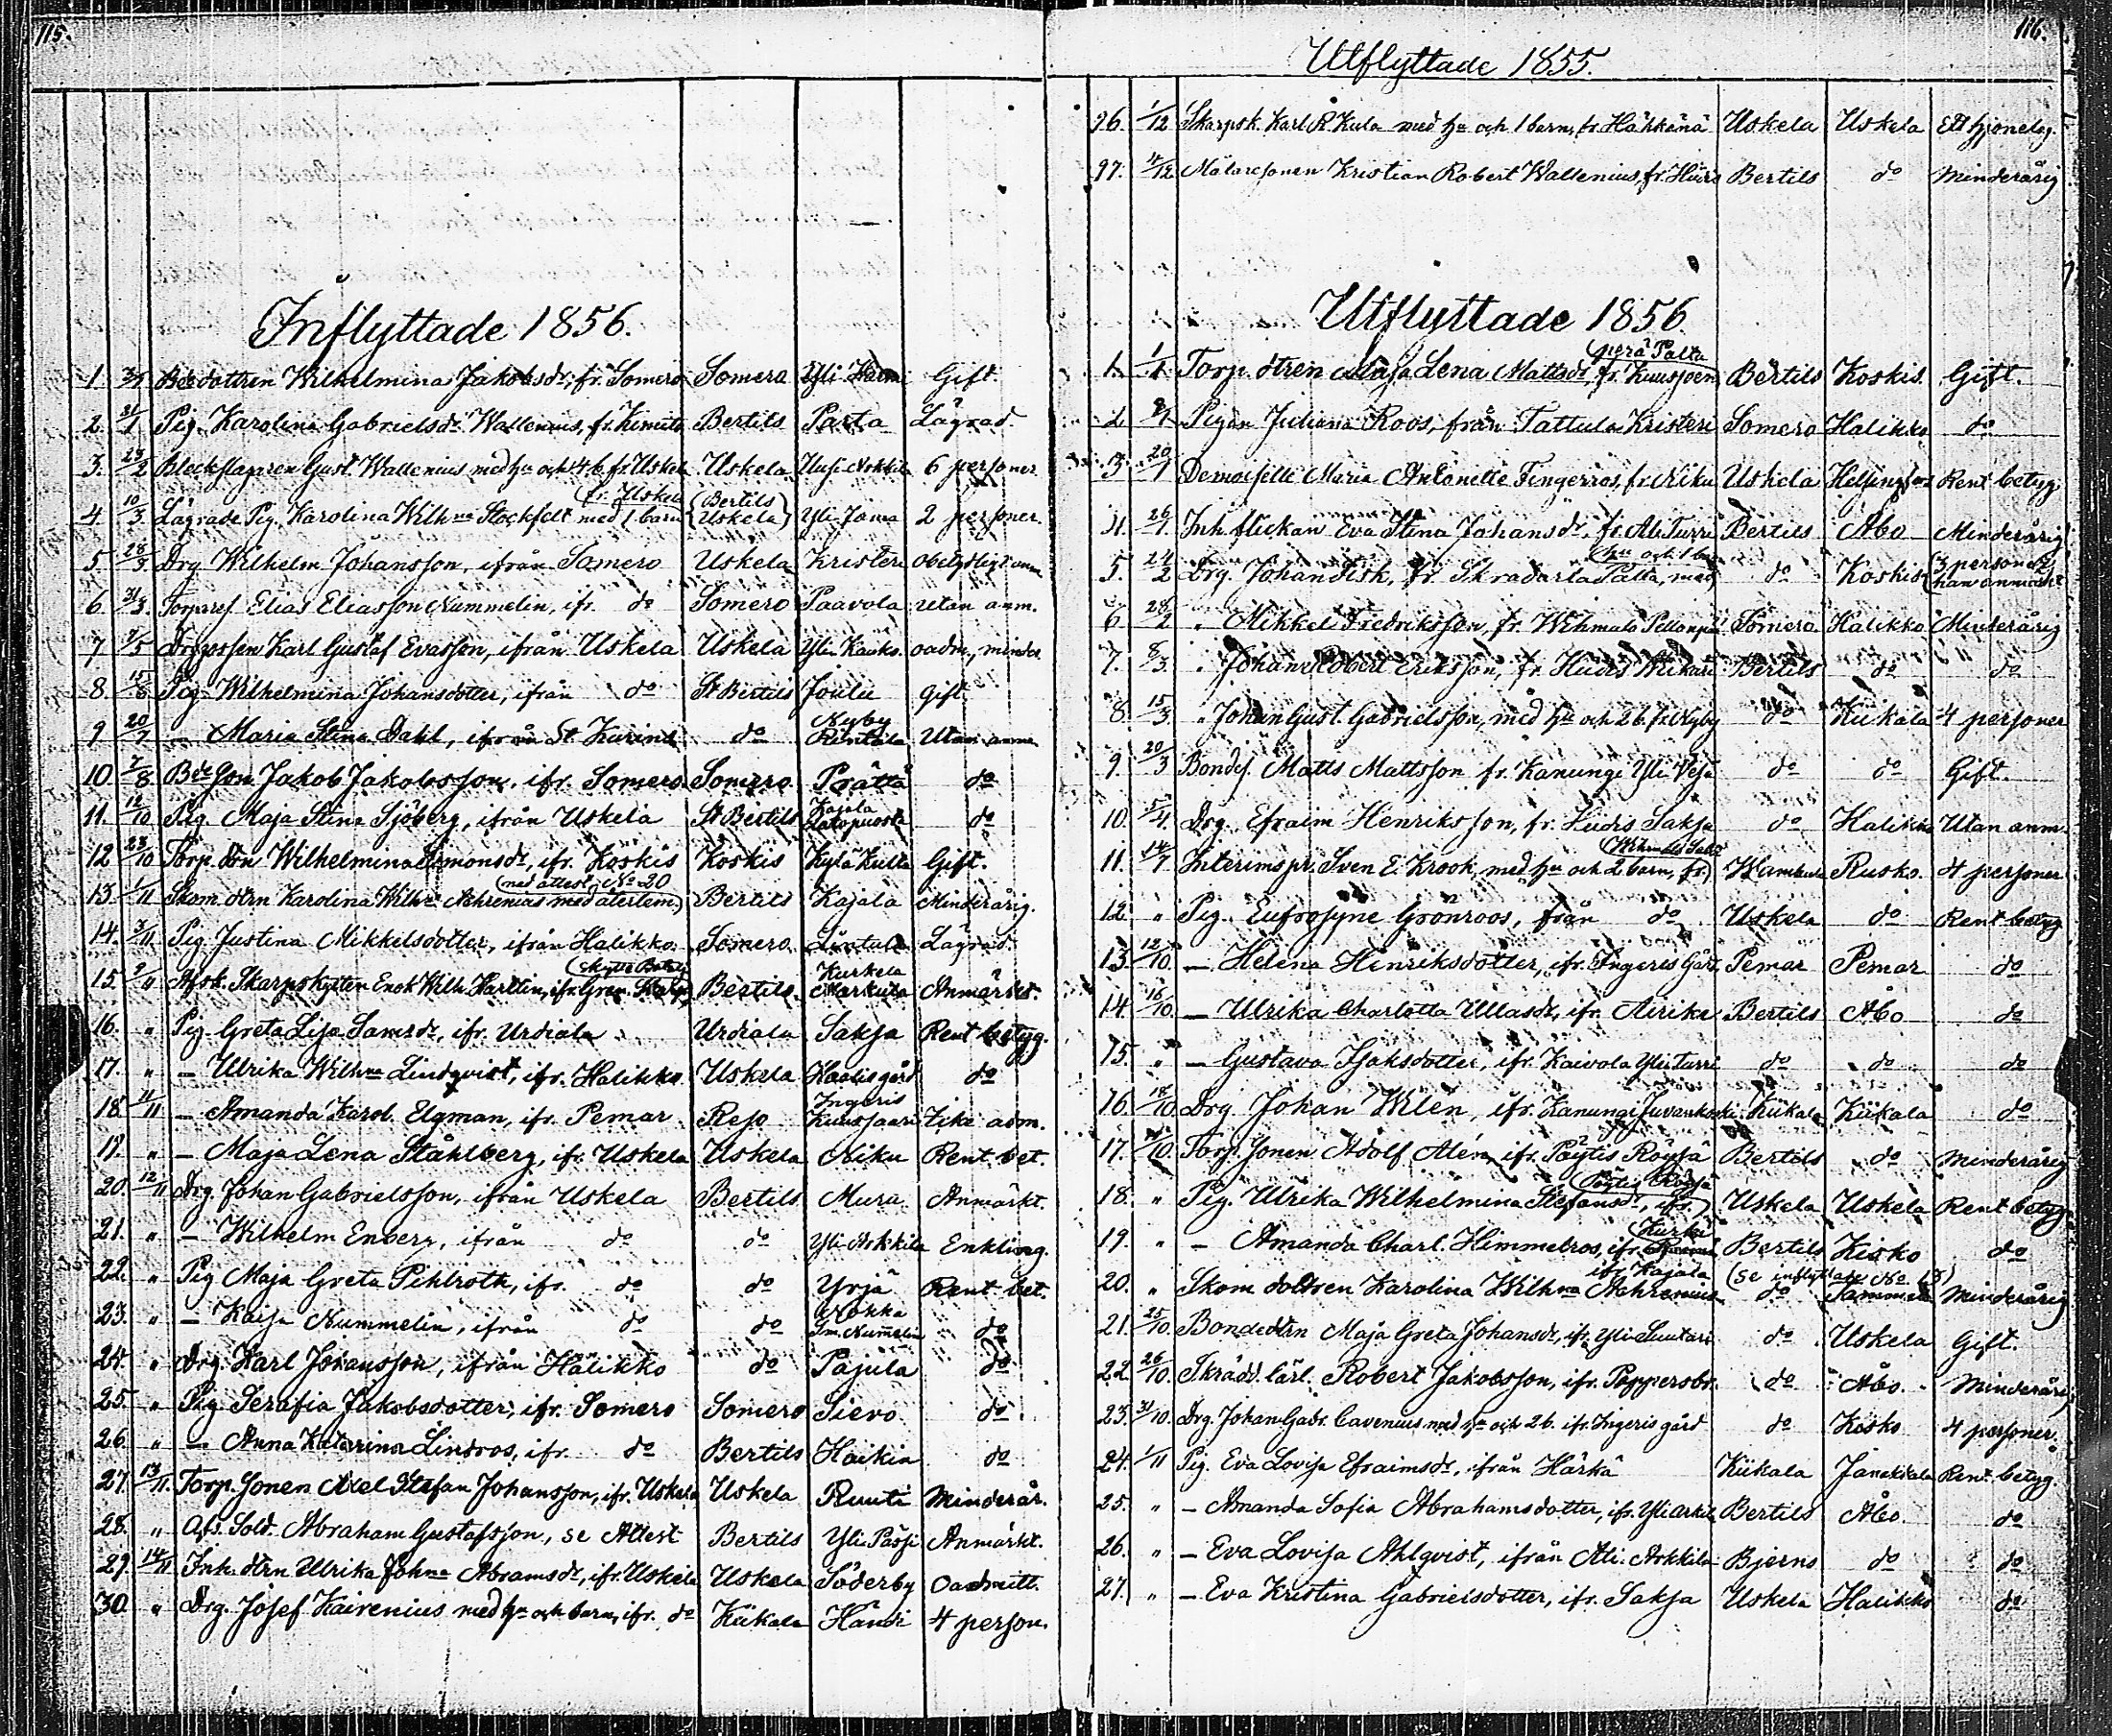 115.
Inflyttade 1856.
1. 3/1 Bdedottren Wilhelmina Jakobsdr, fr. Somero Somero Yli Gift.
2. 31/1 Pig. Karolina Gabrielsdr Wallenius, fr. Kimito Bertils Parta Lägrad.
3. 29/2 Bleckslagaren Gust. Wallenius med hu och 4 b. fr. Uskela Uskela Uusi Arkkila 6 personer.
4. 10/3 Lägrade Pig. Karolina Wilhna Stockfelt med 1 barn (fr. Uskela (Bertils Uskela) Yli Jama 2 personer.
5. 28/3 Drg Wilhelm Johansson, ifrån Somero Uskela Kristeri obetydligt anm
6. 31/3. Torpares Elias Eliasson Nummelin, ifr. do Somero Paavola utan anm.
7 7/5 Drg gossen Karl Gustaf Evasson, ifrån Uskela Uskela Yli Kauko. oadm., minder
8. 15/6 Pig. Wilhelmina Johansdotter, ifrån do St Bertils Joulu gift
9 20/7 — Maria Stina Dahl, ifrån St Karins do Nyby Rintala Utan anm
10. 7/8 Bde Son Jakob Jakobsson. ifr. Somero Somero Prättä do
11. 12/10 Pig. Maja Stina Sjöberg, ifrån Uskela St Bertils Kajala Latopuosta do
12 23/10 Torp. dtn Wilhelmina Simonsdr, ifr. Koskis Koskis Kylä Kulla Gift.
13. 1/11 Skom. dtrn Karolina Wilhna Aehrenius med återtem. (med attest No 20 Bertils Kajala Minderårig.
14. 3/11. Pig. Justina Mikkelsdotter, ifrån Halikko. Somero. Lintula Lägrad.
15. 7/11 Afsk. Skarpskytten Enok Wilh. Harttin, ifr. Gren. Skarp (skytte Batalj Bertils. Kurkela Markula Anmärkt.
16. " Pig. Greta Lisa Samsdr, ifr. Urdiala Urdiala Saksa Rent betyg.
17. " — Ulrika Wilhna Lindqvist, ifr. Halikko. Uskela Haalis gård do
18. 11/11 — Amanda Karol. Elgman, ifr. Pemar Reso Ingeris Kuussaari Icke adm.
19. " — Maja Lena Ståhlberg, ifr. Uskela Uskela Niku Rent bet.
20. 12/11 Drg. Johan Gabrielsson, ifrån Uskela Bertils Mura Anmärkt.
21. " — Wilhelm Enberg, ifrån do do Yli Arkkila Enkling.
22. " Pig Maja Greta Pihlroth, ifr. do do Yrjä Rent bet.
23. " — Kaisa Nummelin, ifrån do do Nokka Sm. Nummelin do
24. " Drg. Karl Johansson, ifrån Halikko do Pajula do
25. " Pig Serafia Jakobsdotter, ifr. Somero Somero Sievo. do
26. " — Anna Katarina Lindros, ifr. do Bertils Haikia do
27. 13/11. Torp. Sonen Axel Stefan Johansson, ifr. Uskela Uskela Ruuti Minderår.
28. " Afs. Sold. Abraham Gustafsson, se Attest Bertils Yli Pässi Anmärkt.
29. 14/11 Inh. dtrn Ulrika Johna Abramsdr, ifr. Uskela Uskela Söderby Oadmitt.
30. " Drg. Josef Kairenius med hu och barn, ifr. do Kiikala Händi 4 person.
116.
Utflyttade 1855.
96. 1/12 Skarpsk. Karl R Kula med hu och 1 barn, fr. Hähkänä Uskela Uskela Ett hjonelag.
97. 11/12 Målaresonen Kristian Robert Wallenius, fr. Hiiris Bertils do Minderårig
Utflyttade 1856.
1. 1/1 Torp. dtren Maja Lena Mattsdr, fr. Kuusjoen (perä Palta Bertils Koskis. Gift.
2 9/1 Pigan Juliana Roos, från Tattula Kristeri Somero Halikko do
3 20/1 Demoiselle Maria Antonette Fingerroos, fr. Niku Uskela Helsingfors Rent betyg.
4. 26/1 Inh. flickan Eva Stina Johansdr, fr. Ali Turri Bertils Åbo Minderårig
5. 24/2 Drg. Johan Fisk, fr. Skradarla Palta, med (hu och 1 barn do Koskis (3 personer han anmärkt
6 28/2 " Mikkel Fredriksson, fr. Wihmalo Pellonpää Somero. Halikko Minderårig
7. 8/3. " Johan Robert Eriksson, fr. Hiidis Wikari Bertils do do
8. 15/3 " Johan Gust. Gabrielsson, med hu och 2 b. fr. Nyby do Kiikala 4 personer
9. 20/3 Bondes. Matts Mattsson fr. Kanungi Yli Vesa do do Gift.
10. 5/4. Drg. Efraim Henriksson, fr. Hiidis Saksa do Halikko Utan anm.
11. 14/7 Interims pr. Sven E. Krook, med hu och 2 barn, fr. Wambula Rusko. 4 personer.
12. " Pig. Eufrosyne Grönroos, från do Uskela do Rent betyg
13. 12/10. — Helena Henriksdotter, ifr. Ingeris Gård. Pemar Pemar do
14. 16/10. — Ulrika Charlotta Ullasdr, ifr. Airike Bertils Åbo do
15. " — Gustava Isaksdotter, ifr. Kaivola Yli Turri do do do
16. 18/10 Drg. Johan Wilén, ifr. Kanungi Juvankoski. Kiikala Kiikala do
17. /10. Torp. Sonen Adolf Alén, ifr. Pöytis Röysä Bertils do Minderårig
18. " Pig. Ulrika Wilhelmina Stefansdr, ifr. (Pöytis Röysä Uskela Uskela Rent betyg
19. " — Amanda Charl. Himmelros, ifr. Kurki Bertils Kisko do
20. " Skom dottren Karolina Wilhna Aehrenius ifr. Kajala do (se inflyttade No 13) Tammela Minderårig
21. 25/10. Bondedtrn Maja Greta Johansdr, ifr. Yli Suutari do Uskela Gift.
22. 26/10. Skrädd. lärl. Robert Jakobsson, ifr. Pappersbr. do Åbo. Minderårig
23. 31/10. Drg. Johan Gabr. Cavenius med hu och 2 b. ifr. Ingeris gård do Kisko 4 personer.
24. 1/11 Pig. Eva Lovisa Efraimsdr, ifrån Härkä Kiikala Janakkala Rent betyg.
25. " — Amanda Sofia Abrahamsdotter, ifr. Yli Arkila Bertils Åbo. do
26. " — Eva Lovisa Ahlqvist, ifrån Ali. Arkkila Bjerno do do
27. " — Eva Kristina Gabrielsdotter, ifr. Saksa Uskela Halikko do